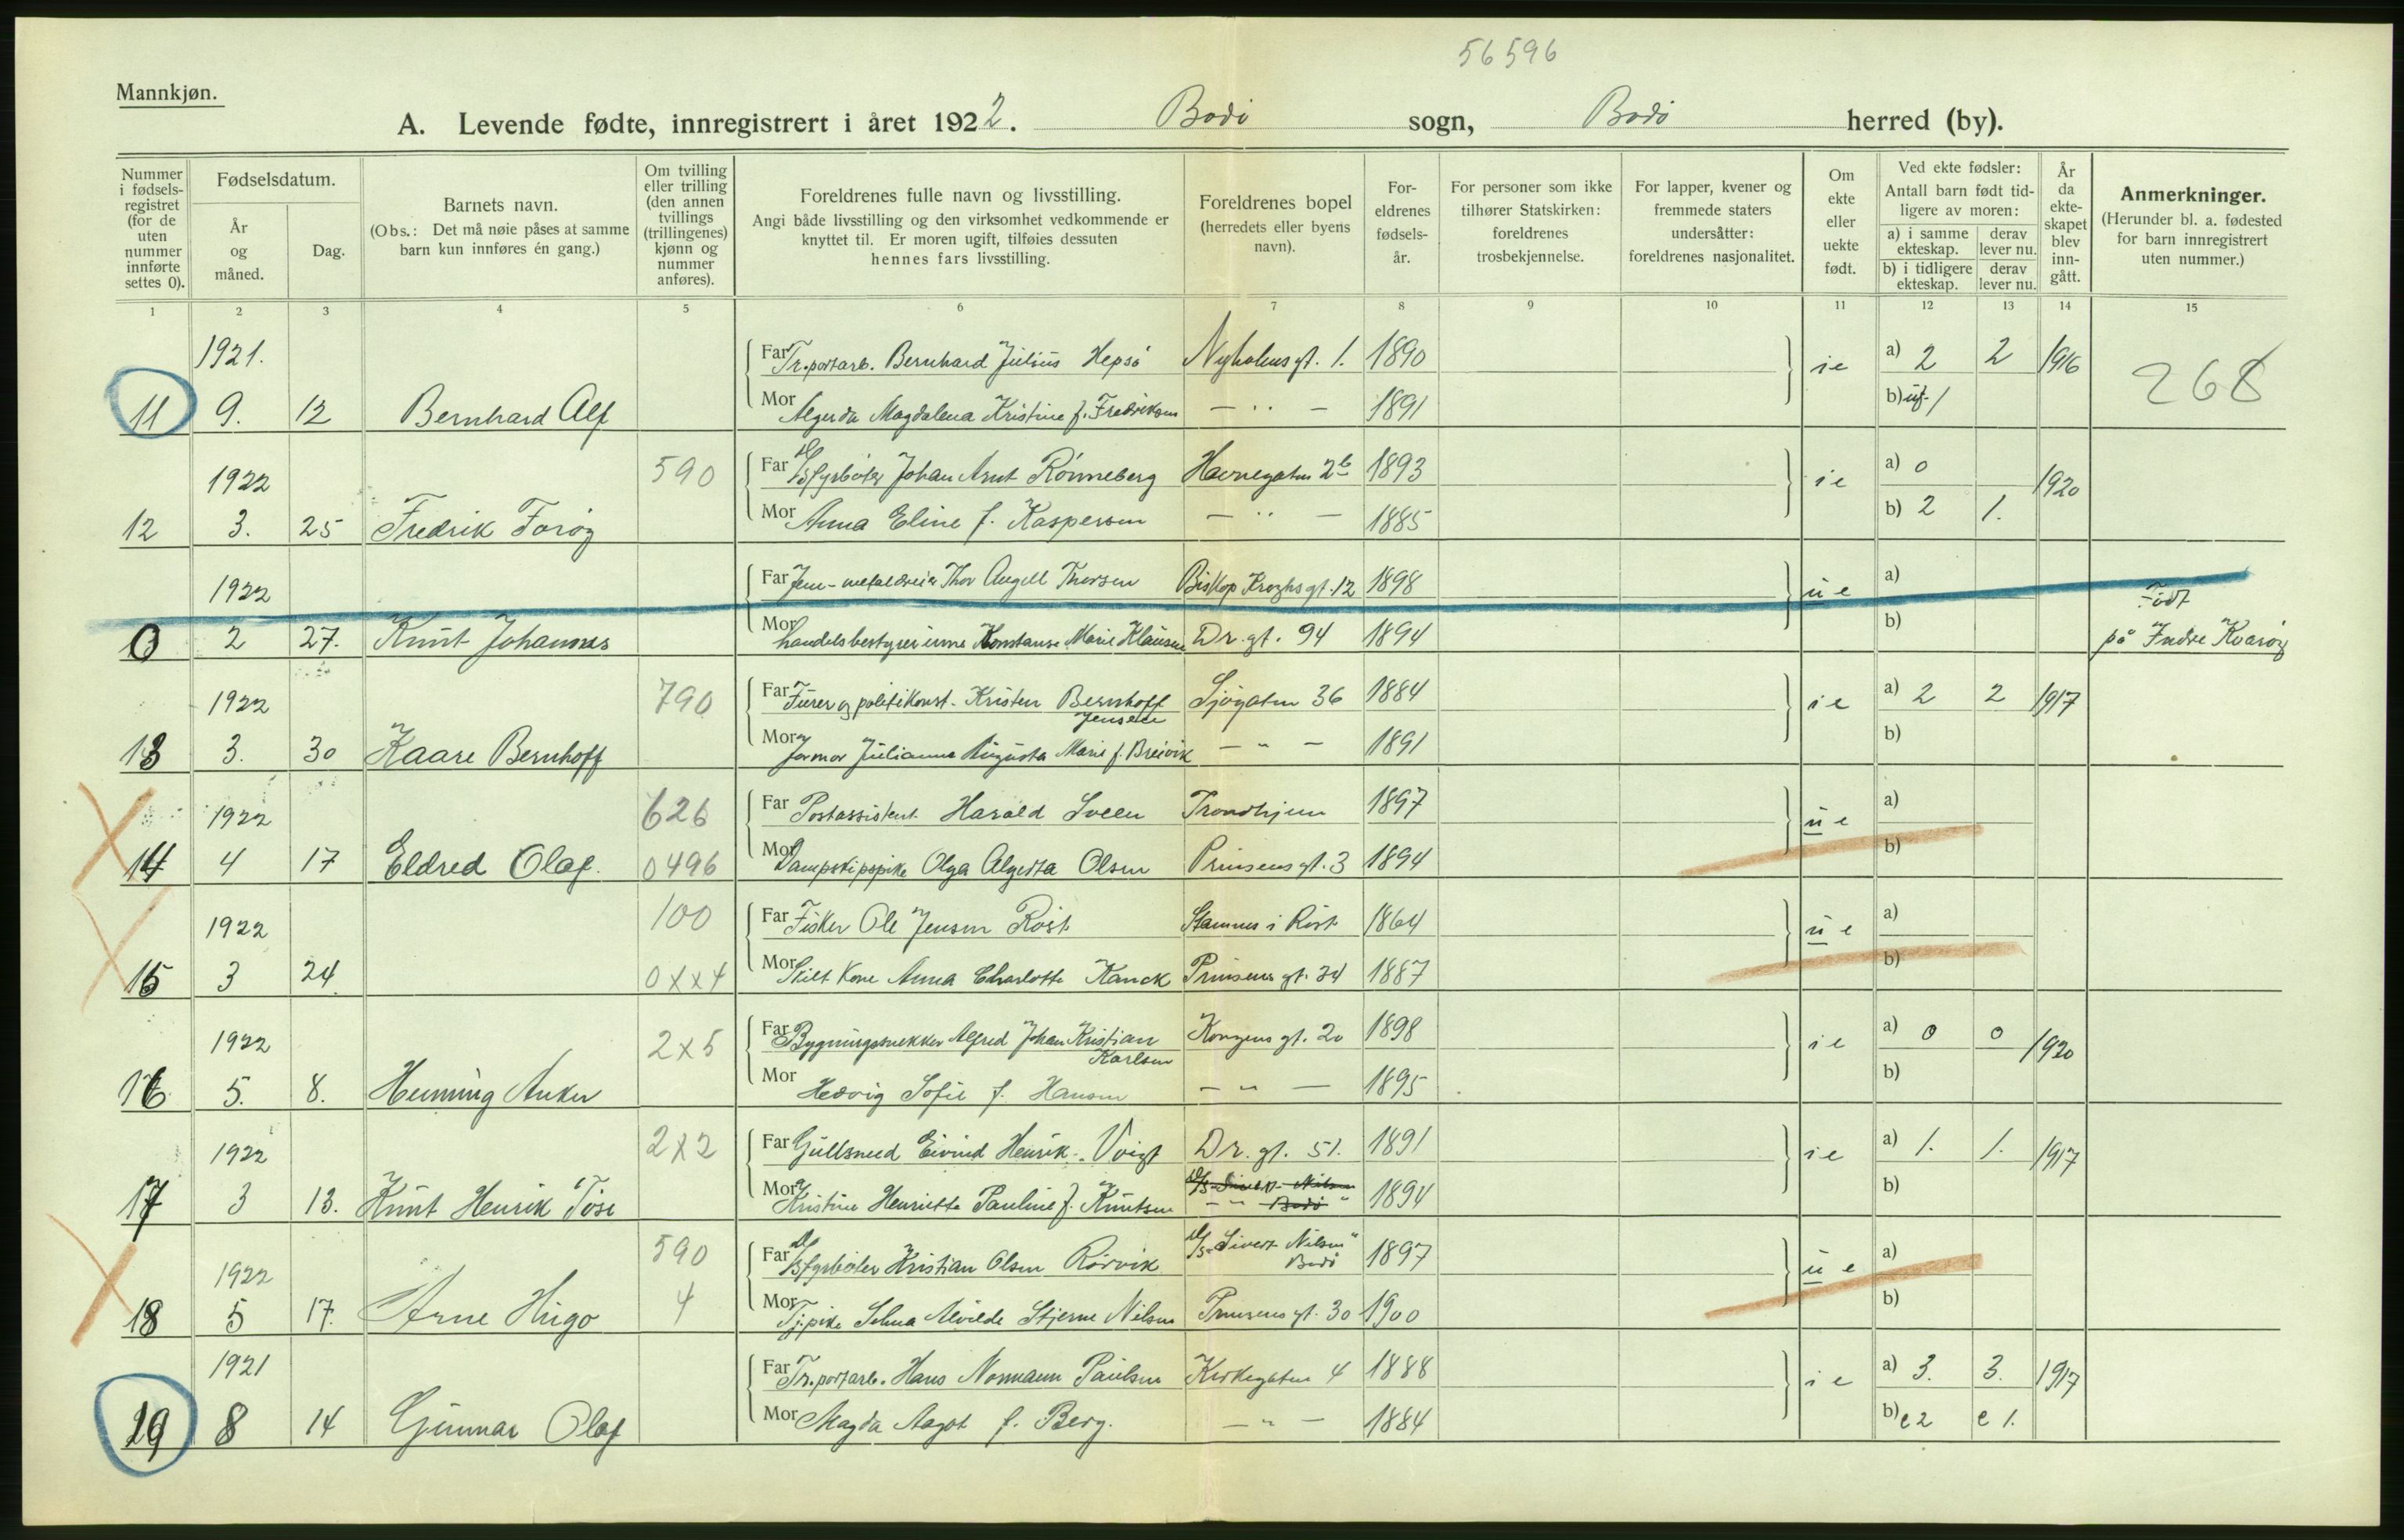 56596
Mannkjøn.
A. Levende fødte, innregistrert i året 1922. Bodö sogn, Bodö herred (by).
Nummer i fødsels-registret (for de uten nummer innførte settes 0).
Fødselsdatum.
År og måned.
Dag.
Barnets navn.
(Obs.: Det må nøie påses at samme barn kun innføres én gang.)
Om tvilling eller trilling (den annen tvillings (trillingenes) kjønn og nummer anføres).
Foreldrenes fulle navn og livsstilling.
Angi både livsstilling og den virksomhet vedkommende er knyttet til. Er moren ugift, tilføies dessuten hennes fars livsstilling.
Foreldrenes bopel (herredets eller byens navn).
For-eldrenes fødsels-år.
For personer som ikke tilhører Statskirken: foreldrenes trosbekjennelse.
For lapper, kvener og fremmede staters undersåtter: foreldrenes nasjonalitet.
Om ekte eller uekte født.
Ved ekte fødsler: Antall barn født tid-ligere av moren:
a) i samme ekteskap.
derav lever nu.
b) i tidligere ekteskap.
derav lever nu.
År da ekte-skapet blev inn-gått.
Anmerkninger.
(Herunder bl. a. fødested for barn innregistrert uten nummer.)
1 2 3 4 5 6 7 8 9 10 11 12 13 14 15
1921. Far Tr.portarb. Bernhard Julius Hepsö Nyholmsgt. 1. 1890 ie a) 2 2 1916 268
11 9. 12 Bernhard Alf Mor Algerda Magdalena Kristine f. Fredriksen — " — 1891 b) uf. 1
1922 590 Far D/S fyrböter Johan Arnt Rönneberg Havnegaten 2b 1893 ie a) 0 1920
12 3. 25 Fredrik Foröy Mor Anna Eline f. Kaspersen — " — 1885 b) 2 1.
1922 Far Jern-metaldreier Thor Angell Thorsen Biskop Kroghsgt. 12 1898 ue a) Födt
0 2 27. Knut Johannes Mor handelsbestyrerinne Konstanse Marie Klausen Dr. gt. 94 1894 b) på Indre Kvaröy
1922 790 Far Furer og politikonst. Kristen Bernhoff Jensen Sjögaten 36 1884 ie a) 2 2 1917
13 3. 30 Kaare Bernhoff Mor Jormor Julianne Augusta Marie f. Breivik — " — 1891 b)
1922 626 Far Postassistent Harald Sveen Trondhjem 1897 ue a)
14 4 17 Eldred Olaf. 0496 Mor Dampskipspike Olga Algerta Olsen Prinsensgt. 3 1894 b)
1922 100 Far Fisker Ole Jensen Röst Stamnes i Röst 1864 ue a)
15 3 24 0xx4 Mor Skilt Kone Anna Charlotte Kanck Prinsens gt. 34 1887 b)
1922 2x5 Far Bygningssnekker Alfred Johan Kristian Karlsen Kongens gt. 20 1898 ie a) 0 0 1920
16 5. 8. Henning Anker Mor Hedvig Sofie f. Hansen — " — 1895 b)
1922 2x2 Far Gullsmed Eivind Henrik Voigt Dr. gt. 51. 1891 ie a) 1. 1. 1917
17 3 13. Knut Henrik Töse Mor Kristine Henriette Pauline f. Knutsen — " — 1894 b)
1922 590 Far D/S fyrböter Kristian Olsen Rörvik D/S "Sivert Nilsen" Bodö 1897 ue a)
18 5 17. Arne Hugo 4 Mor Tj.pike Selma Alvilde Stjerne Nilsen Prinsens gt. 30 1900 b)
1921 Far Tr.portarb. Hans Normann Paulsen Kirkegaten 4 1888 ie a) 3. 3. 1917
19 8 14 Gunnar Olaf Mor Magda Aagot f. Berg. — " — 1884 b) e 2 e 1.